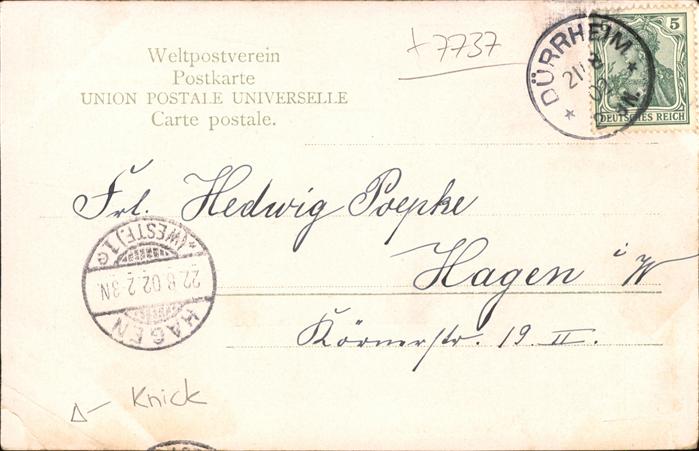 Weltpostverein
Postkarte
UNION POSTALE UNIVERSELLE
Carte postale.
7737
DÜRRHEIM
5
DEUTSCHES REICH
Frl. Hedwig Poepke
Hagen i/W
Körnerstr. 19 II.
HAGEN
22.8.02.2-3N.
(WESTF.) 1c
Knick